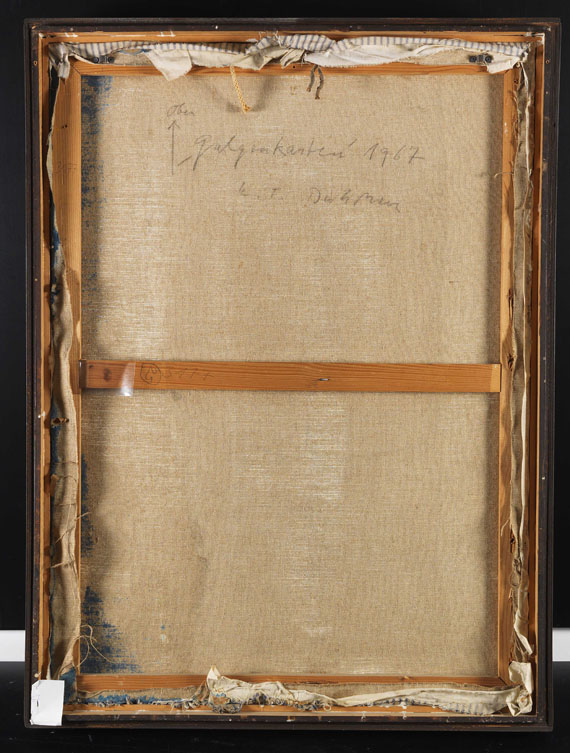 oben
"Galgenkasten" 1967
K. F. Dahmen